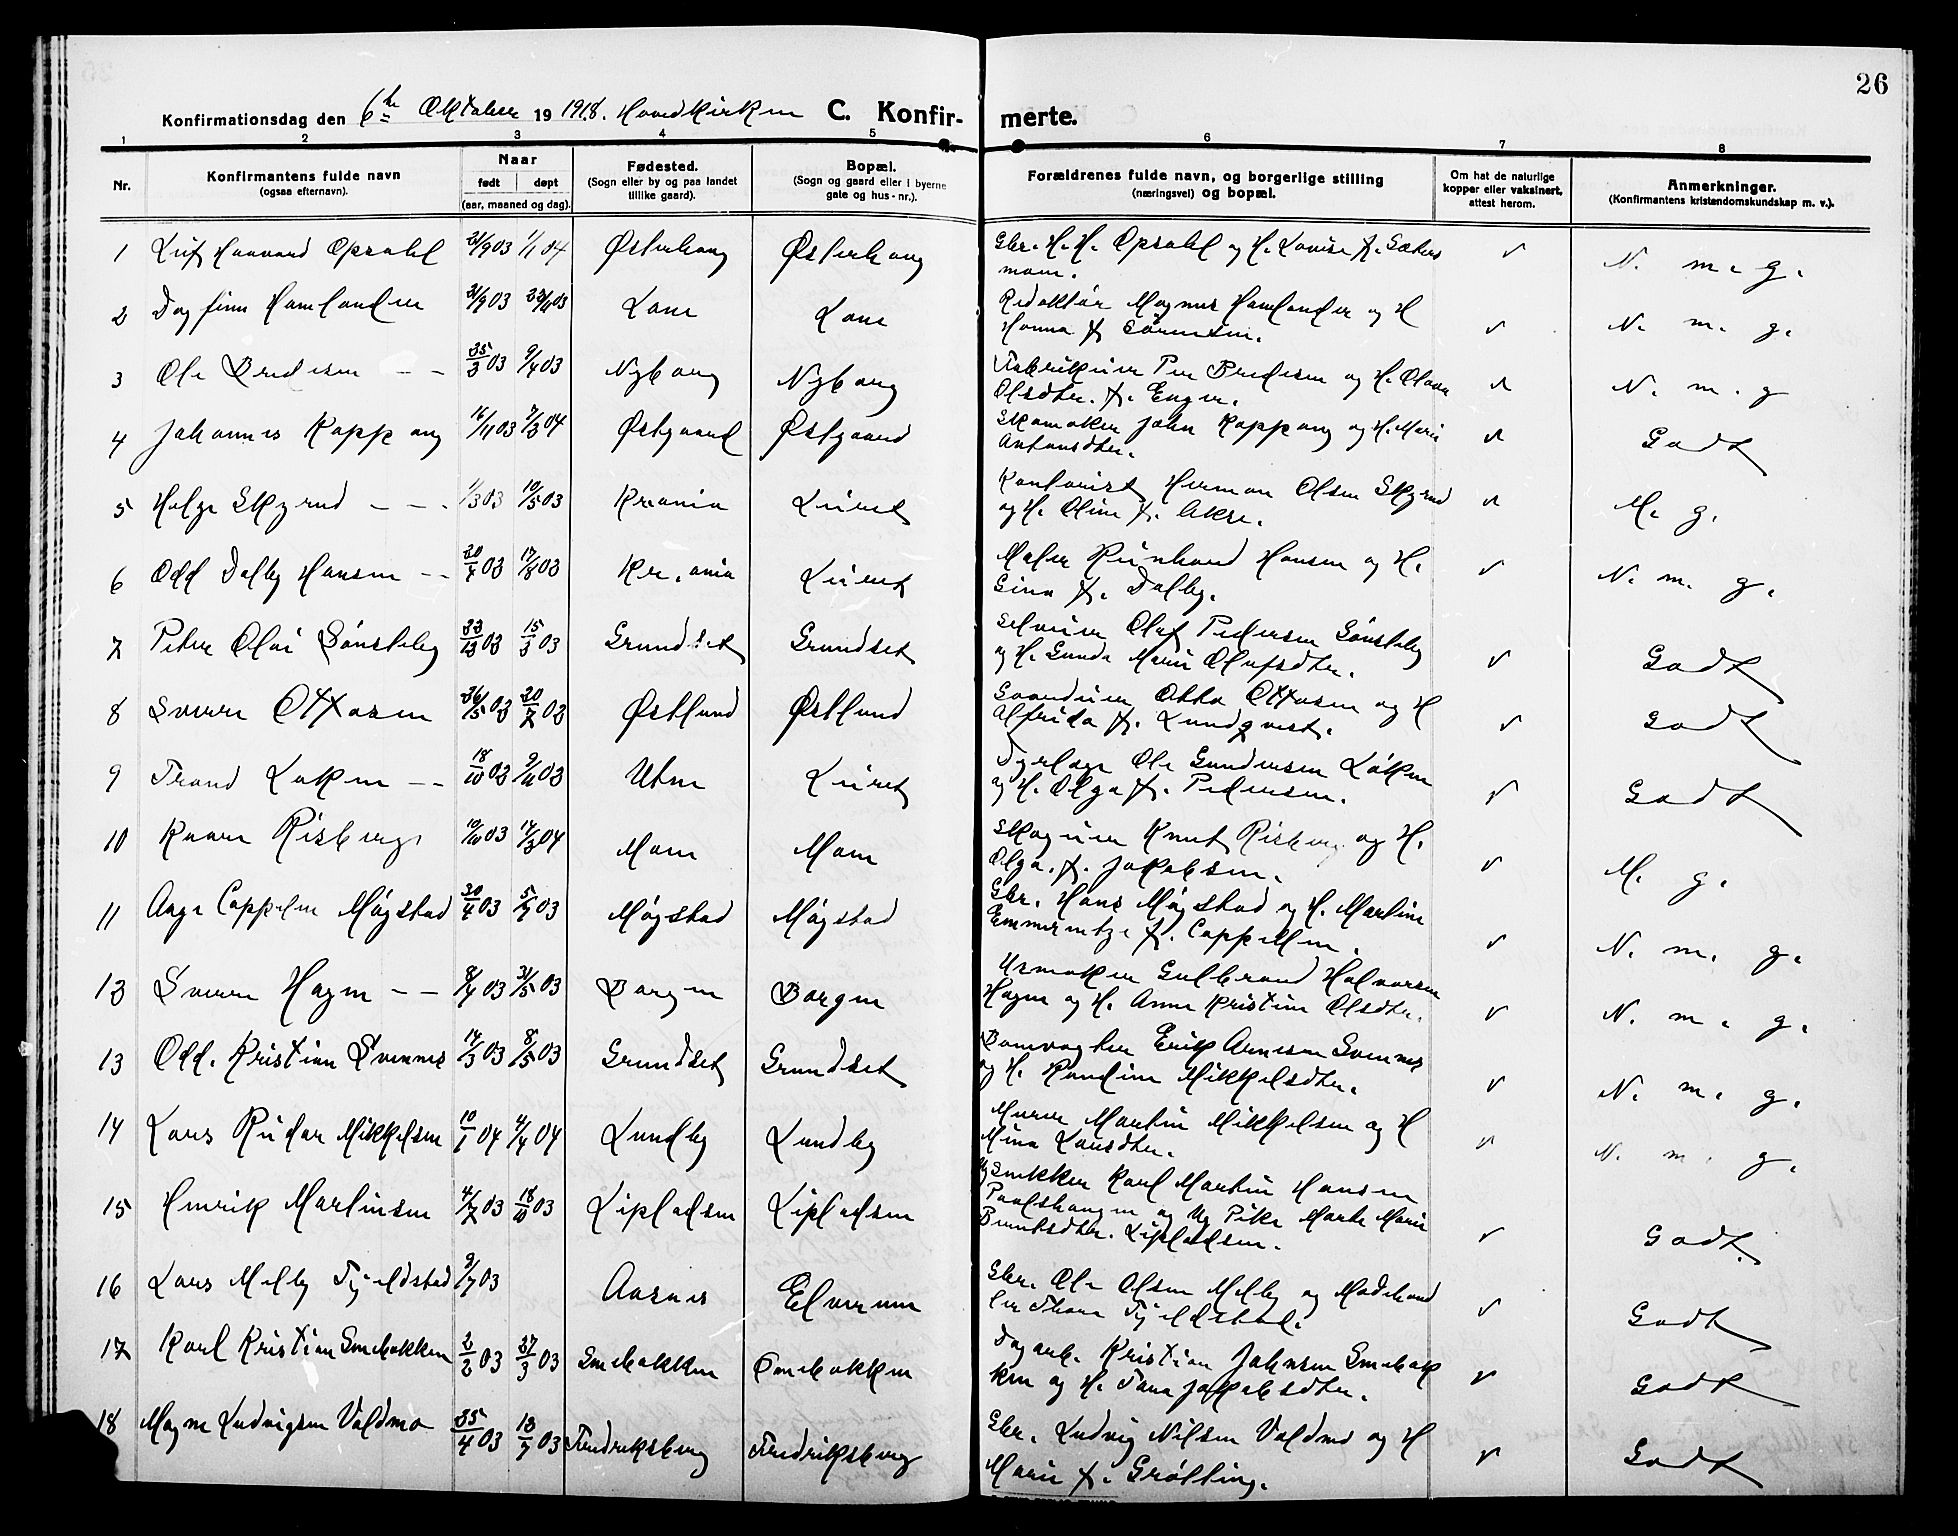 26
Konfirmationsdag den 6te Oktober 19 1918. Hovedkirken C. Konfirmerte.
1 2 3 4 5 6 7 8
Nr. Konfirmantens fulde navn (ogsaa efternavn). Naar født døpt (aar, maaned og dag). Fødested. (Sogn eller by og paa landet tillike gaard). Bopæl. (Sogn og gaard eller i byerne gate og hus-nr.). Forældrenes fulde navn, og borgerlige stilling (næringsvei) og bopæl. Om hat de naturlige kopper eller vaksinert, attest herom. Anmerkninger. (Konfirmantens kristendomskundskap m. v.).
1 Leif Haavard Opsahl 21/9 03 1/1 04 Østerhaug Østerhaug Gbr. H. H. Opsahl og H. Lovise f. Sæter v N. m. g.
moen.
2 Dagfinn Hamlander 21/9 03 03 Redaktør Magnus Hamlander og H
Hanna f. Sørensen. v N. m. g.
3 Ole Bredesen -- 25/3 03 9/4 03 Nyborg Nyborg Fabrikeier Per Bredesen og H. Olava
Olsdtr. f. Enger. v N. m. g
4 Johannes Koppang 16/11 03 7/3 04 Østgaard Østgaard Skomaker John Koppang og H. Marie
Antonsdtr. v Godt
5 Helge Skyrud --- 1/3 03 10/5 03 Kr.ania Leiret Kontorist Herman Olsen Skyrud
og H. Oline f. Akre. v M. g.
6 Odd Dalby Hansen -- 20/4 03 17/8 03 Kr.ania Leiret Maler Reinhard Hansen og H.
Gina f. Dalby. v N. m. g.
7 Peter Olai Sønsteby 15/3 03 Grundset Grundset Selveier Olaf Pedersen Sønsteby
og H. Gunda Marie Olafsdtr. v Godt
8 Sverre Ottosen 26/5 03 20/7 03 Østlund Østlund Gaardeier Otto Ottosen og H
Alfrida f. Lundqvist. v Godt
9 Trond Løken -- 18/10 03 9/11 03 Utne Leiret Dyrlæge Ole Gundersen Løken
og H. Olga f. Pedersen. v Godt
10 Kaare Risberg. 10/10 03 14/3 04 Moen Moen Skogeier Knut Risberg og H.
Olga. f. Jakobsen. v M. g.
11 Aage Cappelen Møystad 20/4 03 5/7 03 Møystad Møystad Gbr. Hans Møystad og H. Martine
Emmerentze f. Cappelen. v N. m. g.
12 Sverre Hagen -- 8/4 03 31/5 03 Borgen Borgen Urmaker Gulbrand Halvorsen
Hagen og H. Anne Kristine Olsdtr. v N. m. g.
13 Odd. Kristian Svennes 14/3 03 8/5 03 Grundset Grundset Bomvogter Erik Arnesen Svennes
og H. Randine Mikkelsdtr. v N. m. g.
14 Lars Reidar Mikkelsen 10/1 04 4/4 04 Lundby Lundby Murer Martin Mikkelsen og H
Mina Larsdtr. v N. m. g.
15 Henrik Martinsen 4/7 03 18/10 03 Lipladsen Lipladsen Ug Snekker Karl Martin Hansen
Paalshaugen og Ug Pike Marte Marie
Berntsdtr. Lipladsen. v Godt.
16 Lars Melby Tjeldstad 9/7 03 Aasnes Elverum Gbr. Ole Olsen Melby og Modehand
ler Thora Tjeldstad. v Godt
17 Karl Kristian Smebakken 2/2 03 27/3 03 Smebakken Smebakken Dagarb. Kristian Johnsen Smebak
ken og H. Jakobsdtr. v Godt
18 Magne Ludvigsen Voldmo 25/4 03 12/7 03 Fredriksberg Fredriksberg Gbr. Ludvig Nilsen Voldmo og H
Marie f. Grøtting. v Godt